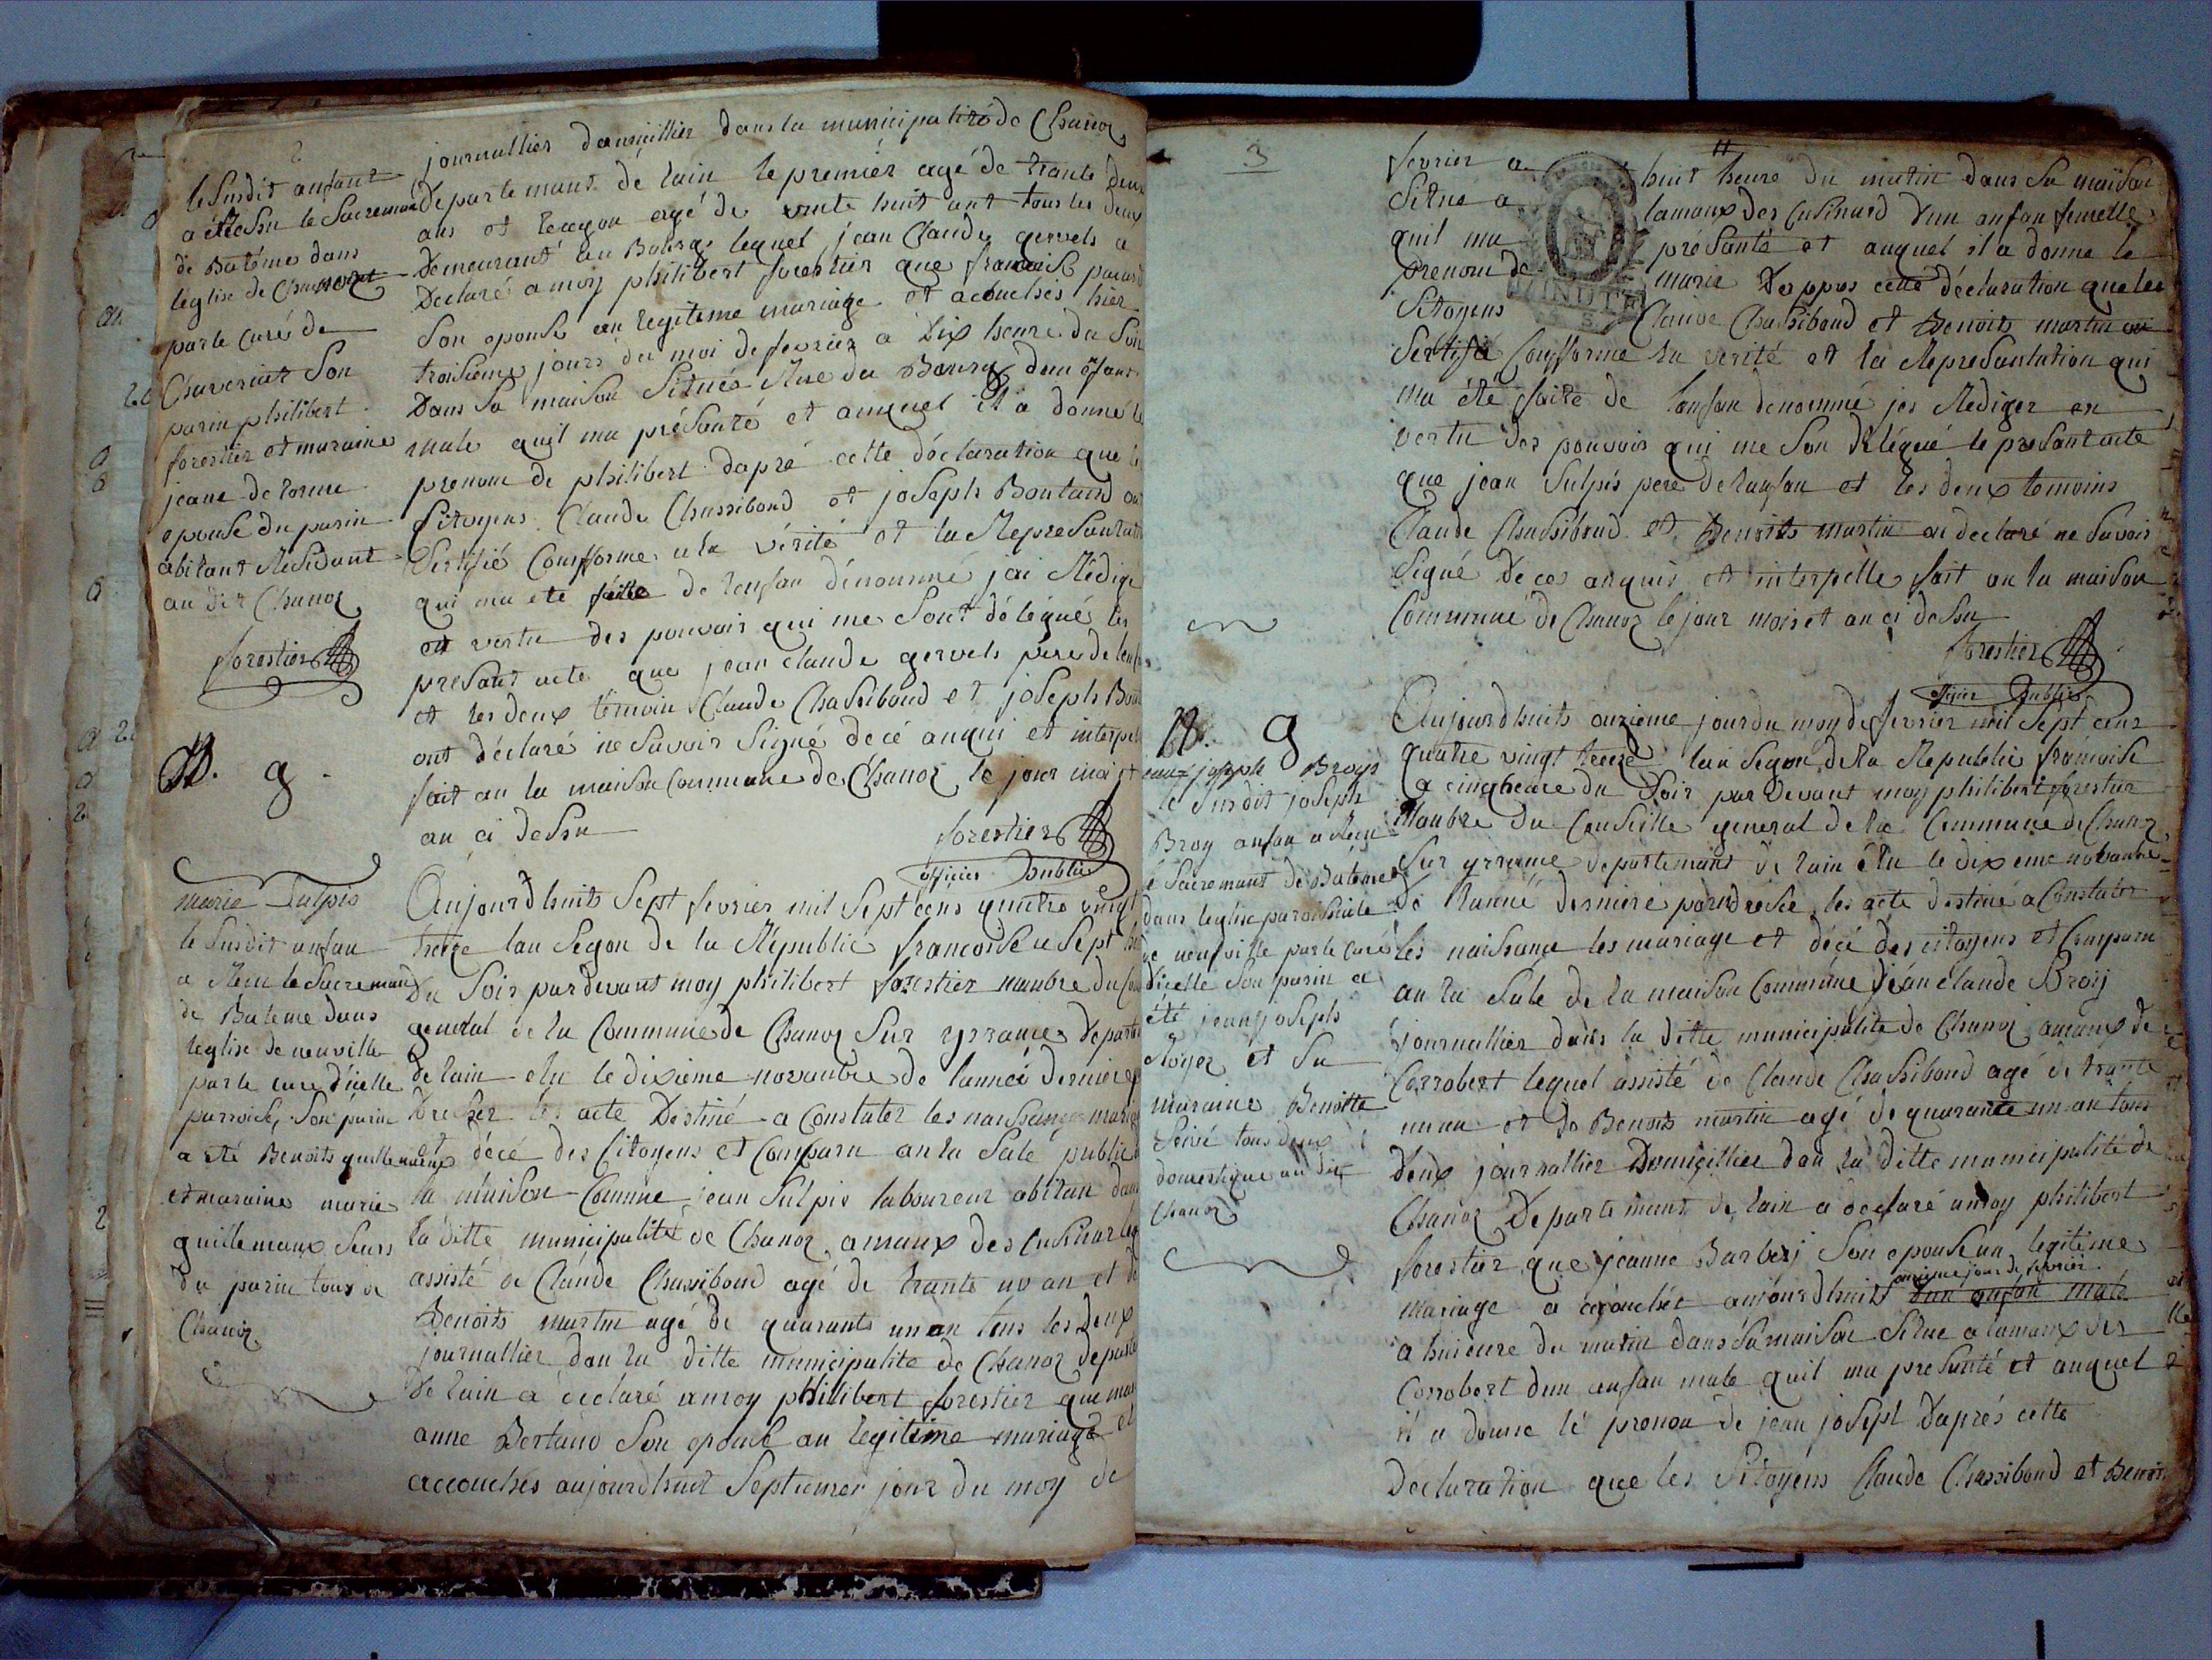 2
le susdit anfant
a été Su le Sacreman
de Batême dans
leglise de
par le Curé de
Chaveriat Son
parin philibert
forestier et maraine
jeane delorme
epouse du parin
abitant Residant
au dit Chanoz
forestier
journallier domicillier dans la municipalité de Chanoz
Departemant de lain le premiér agé de trante deux
ans et segon agé de vinte huit ant tous les deux
Demeurant au Bourg lequel jean Claude gervels a
Declaré a moy philibert forestier que francoise
Son epouse an legiteme mariage et acouchés hier
troisieme jours du moi de fevrier a Dix heure du Soir
Dans Sa maison Situés Rue du Bourg dun
male quil ma présanté et auquel il a donné le
prenom de philibert dapré cette déclaration que le
Sitoyens Claude Chassiboud et joseph Bontand on
Sertifié Confforme a la vérité et la Represantati
qui ma ete faitte de lenfan dénommé jai Rédige
en vertu des pouvoir qui me sont délégué les
presant acte que jean claude gervels pere de lenfan
et les deux témoin Claude Chassiboud et joseph Bon
ont déclaré ne Savoir Signé dece anqui et interpel
fait an la maison Commune de Chanoz le jour moi et
an ci desu
forestier
officier Public
N. g.
marie Sulpis
le susdit anfan
a Recu le Sacreman
de Bateme dans
leglise de neuville
par le cure dicelle
parroice, Son parin
a eté Benoits guillemaux
et maraine marie
guillemaux Seurs
du parin tous de
Chanoz
Aujourdhuits Sept fevrier mil Sept cens quatre vingt
treize lan Segon de la Républic francoise a Sept h
du Soir pardevant moy philibert forestier manbre du Con
general de la Commune de Chanoz Sur yrrance Departe
de lain elu le dixieme novambre de lanneé derniere
dresser les acte Destiné a Constater les naissance mariage
et décé des Citoyens et Comparu an la Sale public
la maison Comune jean Sulpis laboureur abitan dans
la ditte municipalité de Chanoz amaux des Cusinar leq
assisté de Claude Chassiboud agé de trante un an et de
Benoits martin agé de quarante un an tous les deux
journallier dan la ditte municipalité de Chanoz departe
de lain a declaré amoy philibert forestier que mar
anne Bertaud Son epouse an legitime mariage et
accouchés aujourdhuit Septiemer jour du moy de
3
fevrier a huit heure du matin dans Sa maison
Situe a lamaux des Cusinard dun anfan femelle
quil ma présanté et auquel il a donne le
prenom de marie Dappres cette déclaration que les
Sitoyens Claude Chassiboud et Benoits martin on
Sertifié Confforme la verité et la Represantation qui
ma été faite de lanfan denommé jes Rediger en
vertu des pouvoir qui me Son délégué le presant acte
que jean Sulpis pere de lanfan et les deux temoins
Claude Chassiboud et Benoits martin on declaré ne Savoir
Signé de ces anquis et interpelle fait an la maison
Commune de Chanoz le jour mois et an ci desu
forestier
officier Public
N. g
jean joseph Broys
le Susdit joseph
Broy anfan a Recu
é Sacremant de Bateme
dans leglise paroisiale
de neufville par le curé
dicelle Son parin a
été jean joseph
Royer et Sa
maraine Benoitte
tous deux
domestique au dit
Chanoz
Aujourdhuits onzieme jour du moy de fevrier mil Sept cens
quatre vingt treize lan Segon de la Republic francoise
a cinq heure du Soir par Devant moy philibert forestier
Manbre du Conseille general de la Commune de Chanoz
Sur yrrance departemant de lain élu le dix eme novambre
de lanné derniere pour dresse les acte destiné a Constater
les naissance les mariage et décé des citoyens et Comparu
an la Sale de la maison Commune jéan claude Broy
journallier dans la ditte municipalité de Chanoz amaux de
Corrobert lequel assisté de Claude Chassiboud agé de trante
un an et de Benoits martin agé de quarante un an tous
deux journallier Domicillier dan la ditte municipalité de
Chanoz Departemant de lain a declaré amoy philibert
forestier que jeanne Barberj Son epouse an legitime
mariage a acouchée aujourdhuits onzieme jour de fevrier dun anfan male
a huieure du matin dans Sa maison Situe a lamaux des
Corrobert dun anfan male quil ma presanté et auquel
il a donne lé prenon de jean josept Daprés cette
Declaration que les Sitoyéns Claude Chassiboud et Benoits